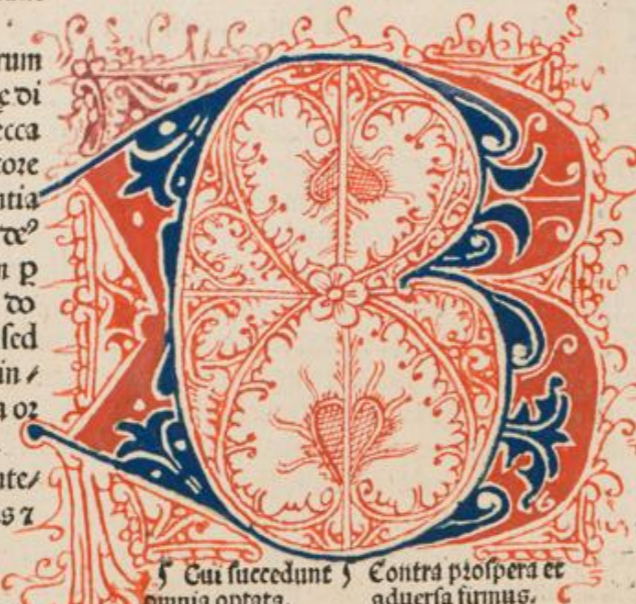 rum
ę di
ecca
tore
ntia
de⁹
n ꝑ
do
sed
in /
a oꝛ
nte/
s ⁊
B
Cui succedunt
omnia optata.
Contra prospera et
adversa firmus.